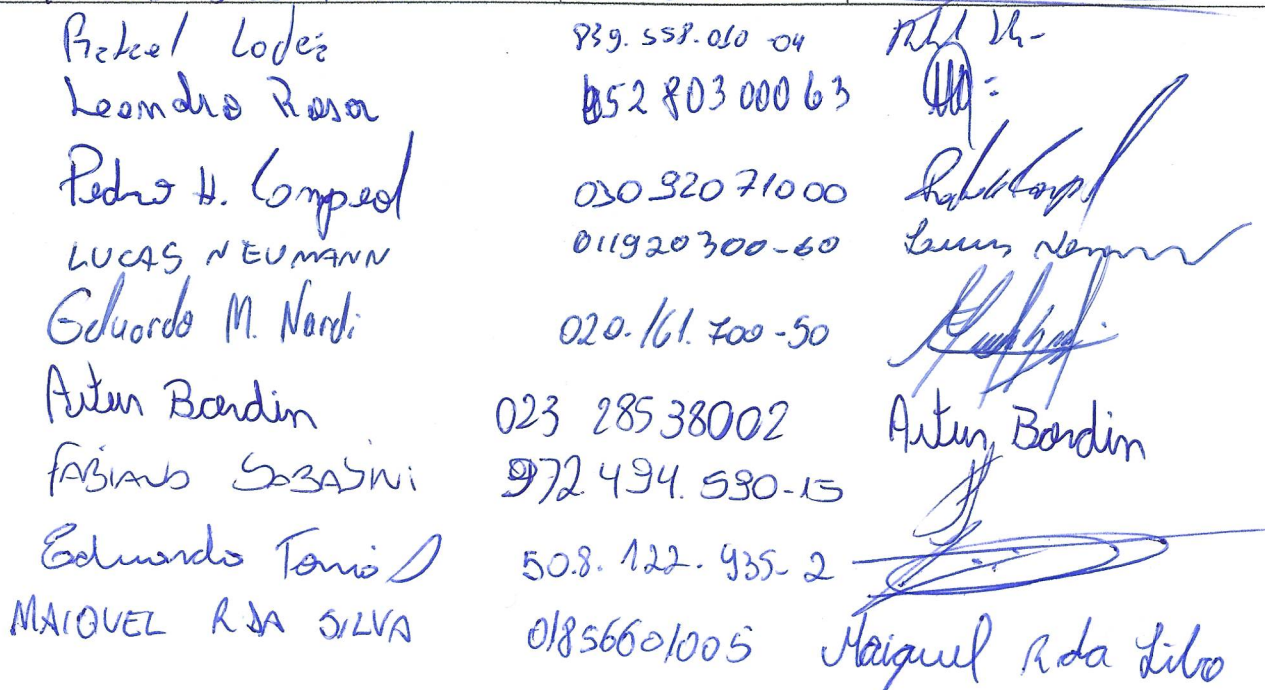 Rafael Lodéa 839.558.010-04
Leandro Rosa 052 803 000 63
Pedro H. Campeol 030 920 710 00
LUCAS NEUMANN 011920300-60 Lucas Neumann
Eduardo M. Nardi 020.161.700-50
Artur Bardin 023 285 38002 Artur Bardin
FABIANO 972.494.590-15
Eduardo 508.122.935-2
MAIQUEL R DA SILVA 01856601005 Maiquel R da Silva